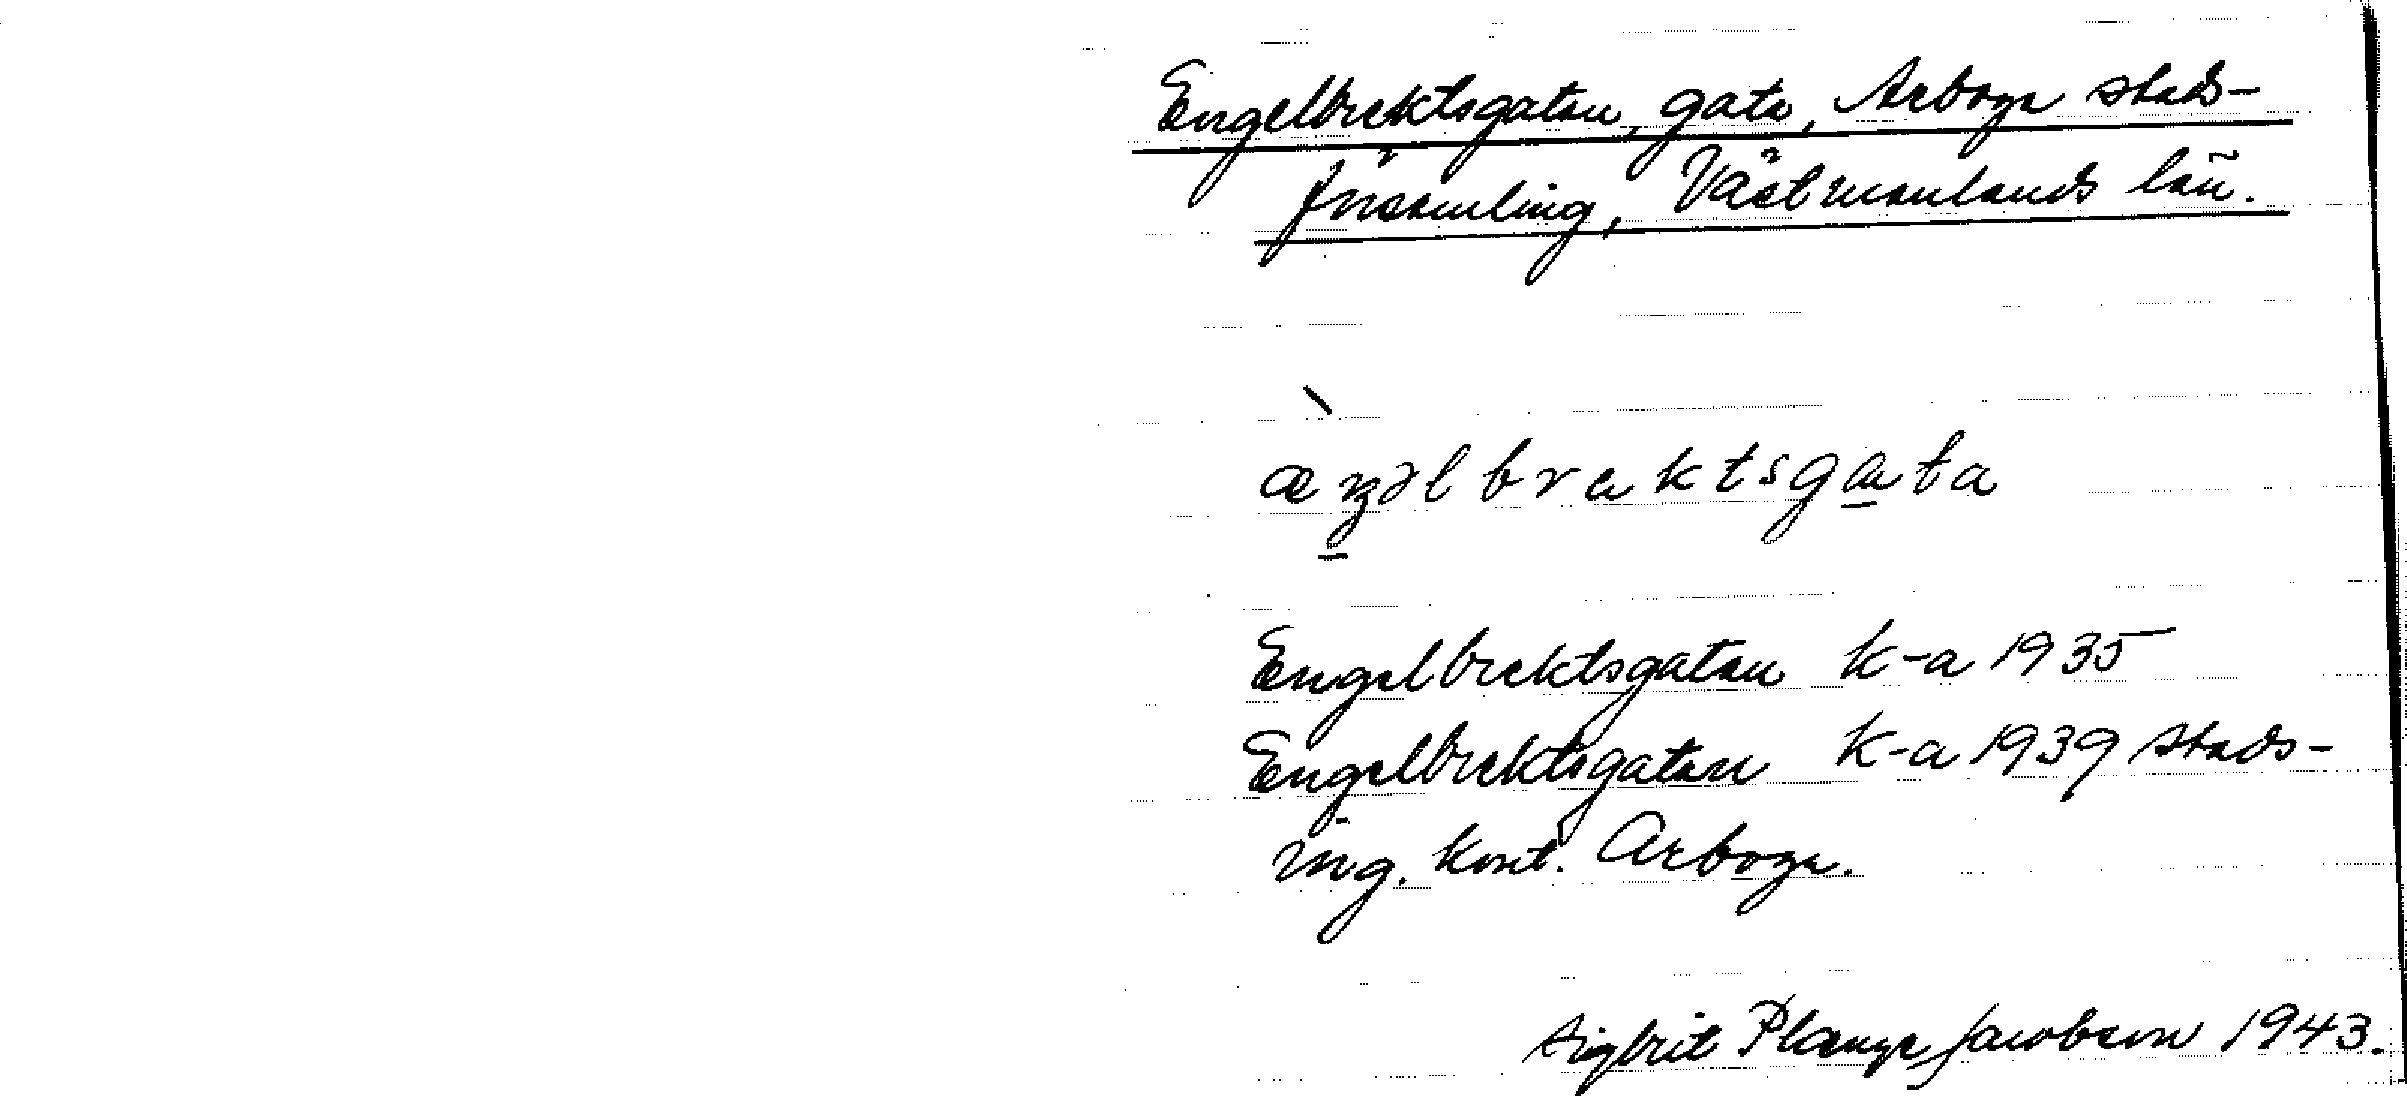 Engelbrektsgatan, gata, Arboga stads-
församling, Västmanlands län.
æŋəlbrektsgata
Engelbrektsgatan k-a 1935
Engelbrektsgatan k-a 1939 stads-
ing. kont. Arboga.
Sigbrit Plænge Jacobson 1943.